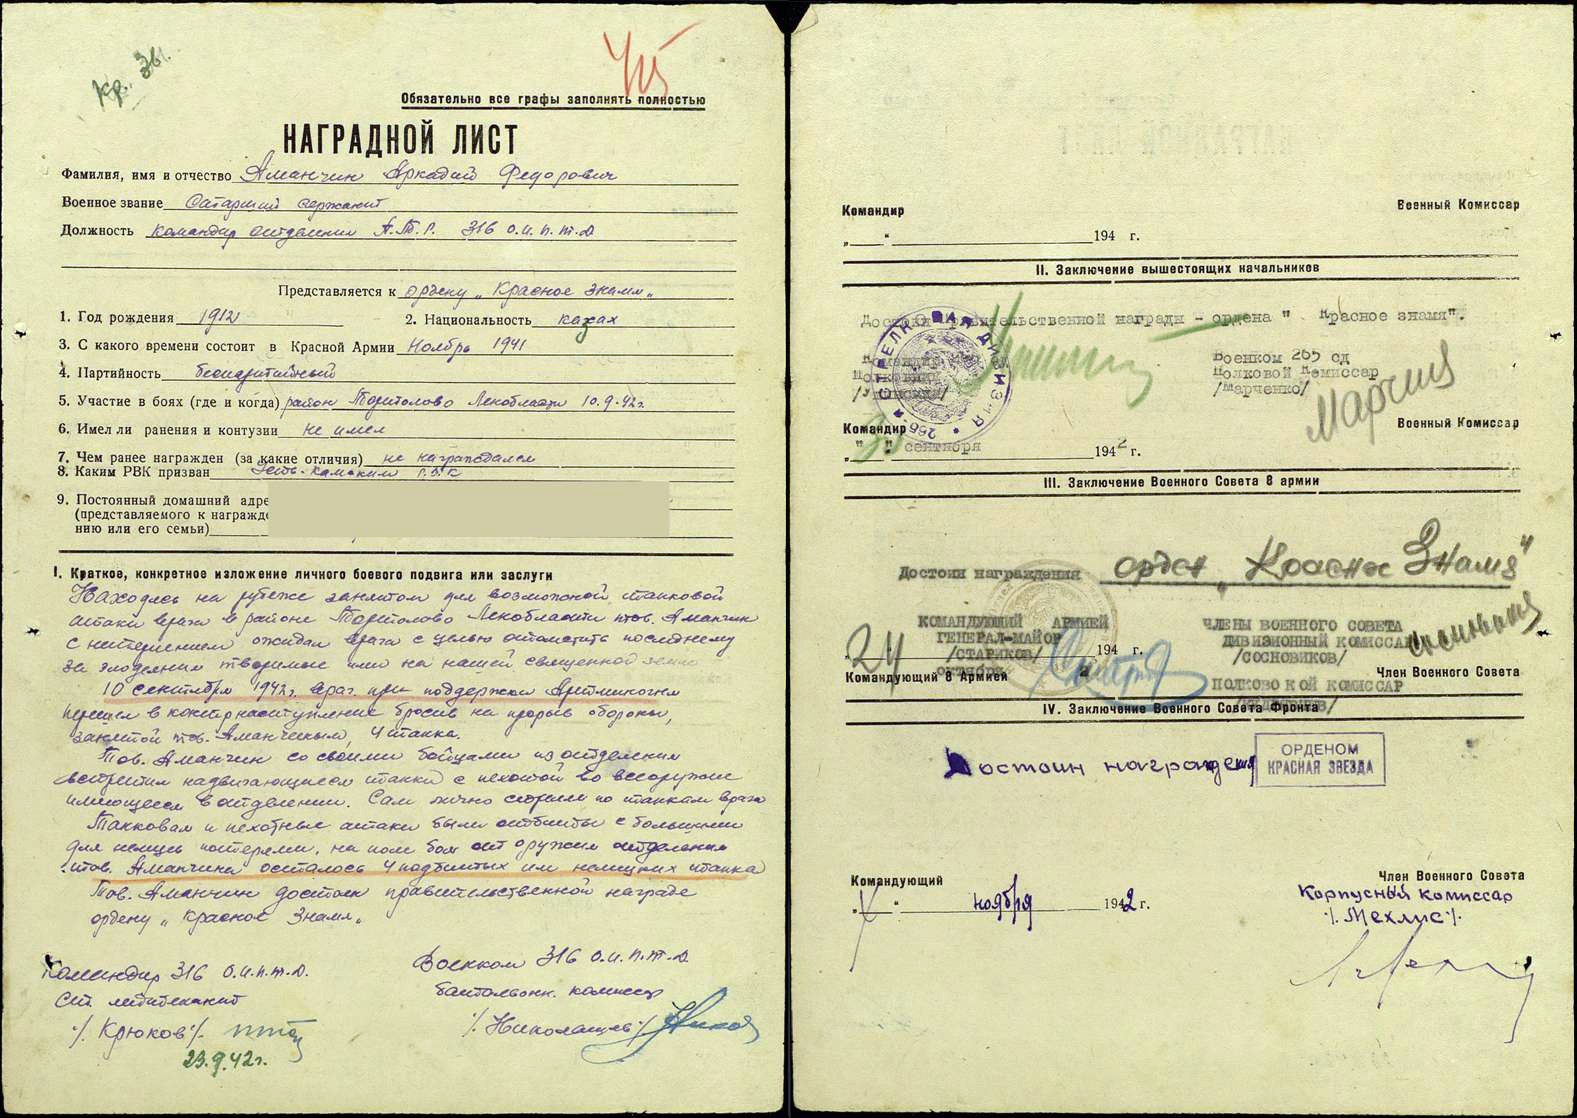 Кр. Зв.
Обязательно все графы заполнять полностью
НАГРАДНОЙ ЛИСТ
Фамилия, имя и отчество Аманчин Аркадий Федорович
Военное звание Старший сержант
Должность командир отделения П.Т.Р. 316 о.и.п.т.д
Представляется к ордену „Красное знамя„
1. Год рождения 1912 2. Национальность казах
3. С какого времени состоит в Красной Армии Ноябрь 1941
4. Партийность беспартийный
5. Участие в боях (где и когда) район Тортолово Ленобласти 10.9.42г.
6. Имел ли ранения и контузии не имел
7. Чем ранее награжден (за какие отличия) не награждался
8. Каким РВК призван Усть-Канским Р.В.К
9. Постоянный домашний адре
(представляемого к награжд
нию или его семьи)
I. Краткое, конкретное изложение личного боевого подвига или заслуги
Находясь на рубеже занятом для возможной танковой
атаки врага в районе Тортолово Ленобласти тов. Аманчин
с нетерпением ожидал врага с целью отомстить последнему
за злодеяния творимые ими на нашей священной земле
10 сентября 1942г. враг при поддержки Артминогня
перешел в контрнаступление бросив на прорыв обороны,
занятой тов. Аманчиным, 4 танка.
Тов. Аманчин со своими бойцами из отделения
встретил надвигающиеся танки с пехотой во всеоружие
имеющееся в отделении. Сам лично стрелял по танкам врага
Танковая и пехотные атаки были отбиты с большими
для немцев потерями. на поле боя от оружия отделения
тов. Аманчина осталось 4 подбитых им немецких танка
Тов. Аманчин достоин правительственной награде
ордену „Красное Знамя„
Командир 316 о.и.п.т.д.
Ст. лейтенант
/Крюков/
23.9.42г.
Военком 316 о.и.п.т.д
батальонн. комиссар
/Николашев/
Командир Военный Комиссар
„ “ 194 г.
II. Заключение вышестоящих начальников
Достоин правительственной награды - ордена " Красное знамя".
Военком 265 сд
Полковой Комиссар
/Марченко/
СТРЕЛКОВАЯ ДИВИЗИЯ
Командир Военный Комиссар
" " сентября 1942 г.
III. Заключение Военного Совета 8 армии
Достоин награждения орден „Красное Знамя“
КОМАНДУЮЩИЙ АРМИЕЙ
ГЕНЕРАЛ-МАЙОР
/СТАРИКОВ/
24 октября 194 г.
ЧЛЕНЫ ВОЕННОГО СОВЕТА
ДИВИЗИОННЫЙ КОМИССАР
/СОСНОВИКОВ/
Командующий 8 Армией Член Военного Совета
ПОЛКОВОЙ КОМИССАР
IV. Заключение Военного Совета Фронта
Достоин награждения
ОРДЕНОМ
КРАСНАЯ ЗВЕЗДА
Командующий Член Военного Совета
„ “ ноября 1942 г.
Корпусный комиссар
/Мехлис/